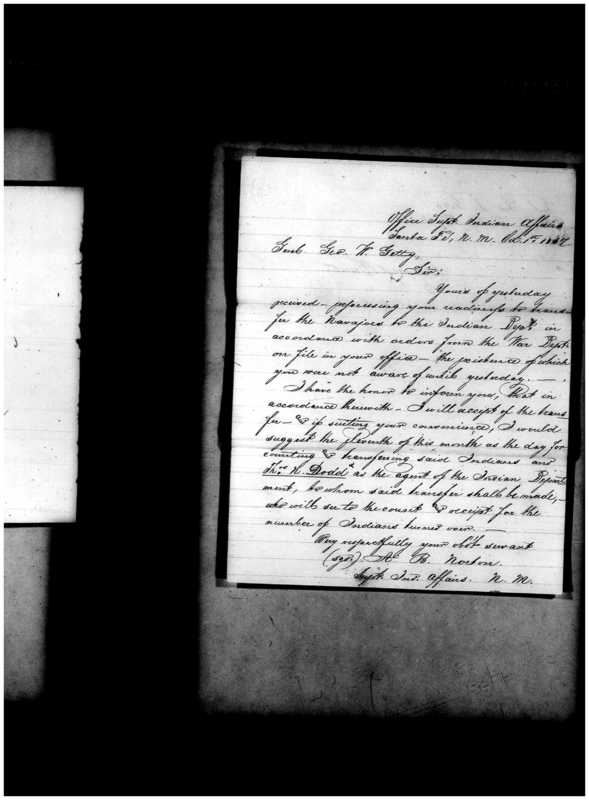 Office Supt. Indian Affairs
Santa Fé, N. M. Oct. 1st 1867
Genl. Geo. W. Getty,
Sir:
Yours of yesterday
received – expressing your readiness to trans-
fer the Navajoes to the Indian Dept. in
accordance with orders from the War Dept.
on file in your office – the existence of which
you were not aware of until yesterday. —
I have the honor to inform you, that in
accordance therewith – I will accept of the trans
fer – & if suiting your convenience, I would
suggest the eleventh of this month as the day for
counting & transfering said Indians and
Thos. N. Dodd as the agent of the Indian Depart
ment, to whom said transfer shall be made, –
who will see to the count & receipt for the
number of Indians turned over.
Very respectfully your obt. servant
(sgd) A. B. Norton.
Supt. Ind. Affairs. N. M.